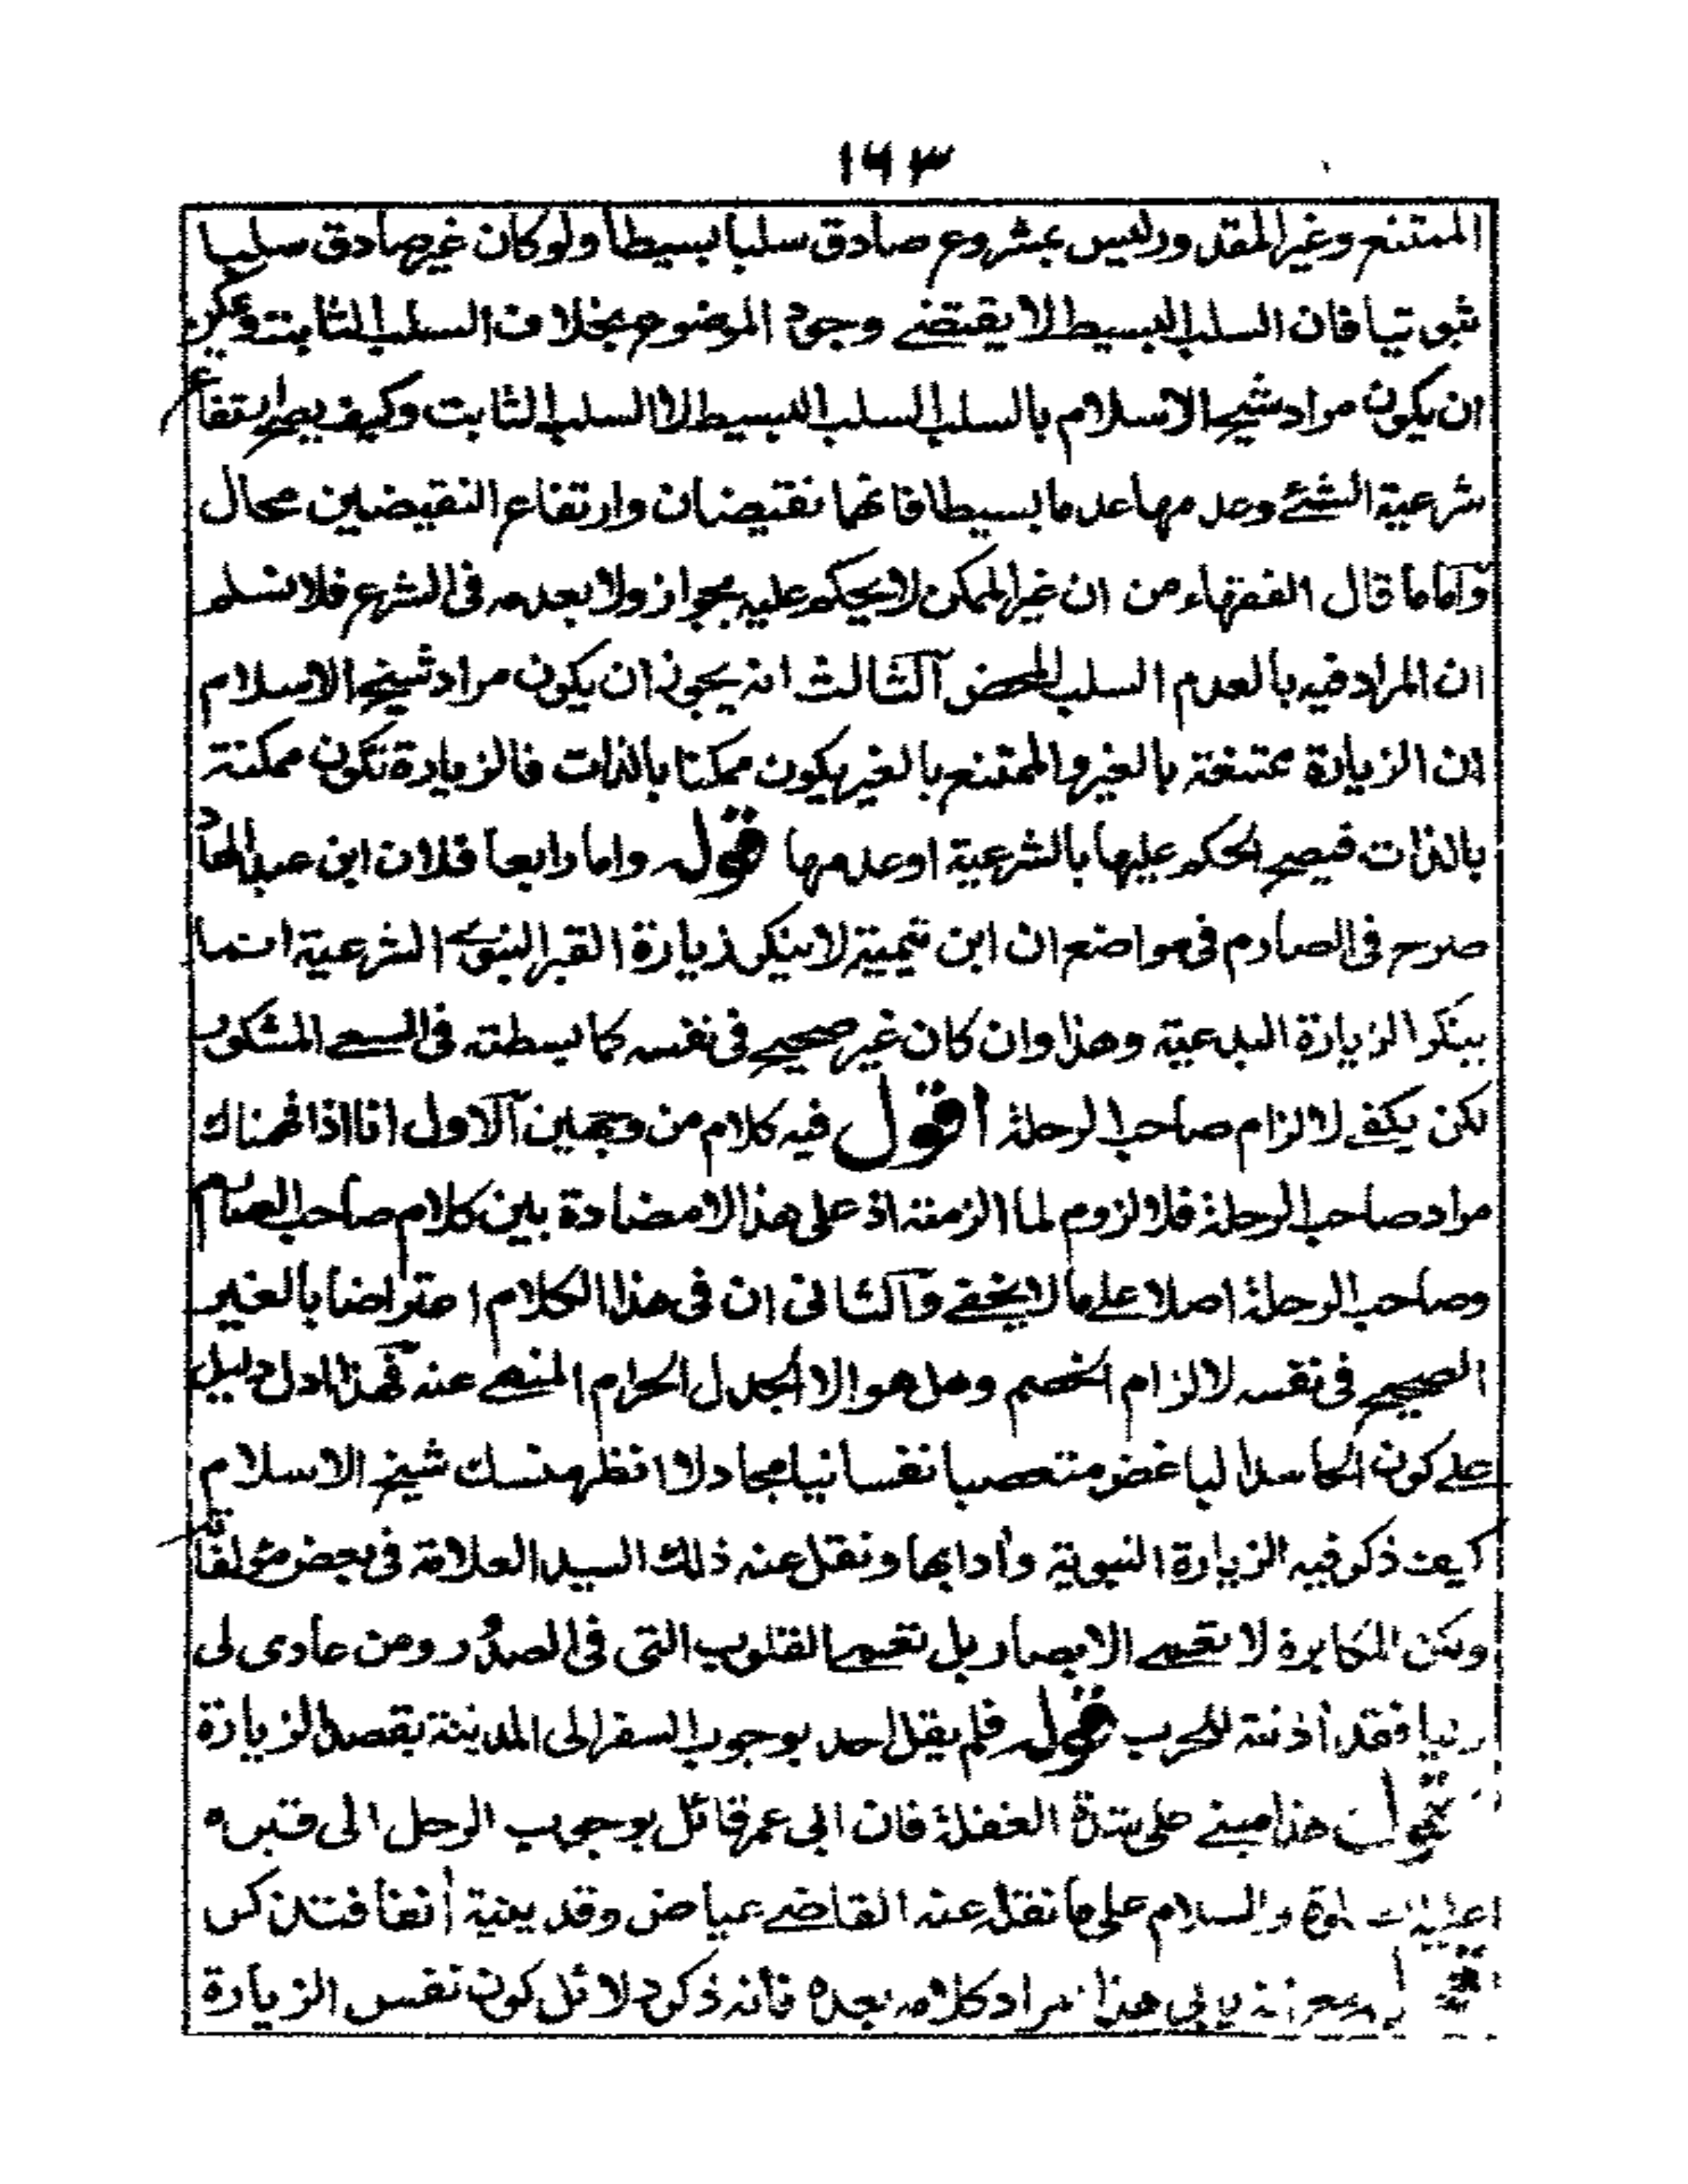 ١٦٣
الممتنع وغير المقدور ليس بمشروع صادق سلبا بسيطا ولو كان غير صادق سلبا
ثبوتيا فان السلب البسيط لا يقتضي وجود الموضوع بخلاف السلب الثابت ويمكن
ان يكون مراد شيخ الاسلام بالسلب السلب البسيط لا السلب الثابت وكيف يصح ارتفاع
شرعية الشئ وعدمها عدما بسيطا فانهما نقيضان وارتفاع النقيضين محال
وأما ما قال الفقهاء من ان غير الممكن لا يحكم عليه بجواز ولا بعدمه في الشرع فلا نسلم
ان المراد فيه بالعدم السلب المحض الثالث انه يجوز ان يكون مراد شيخ الاسلام
ان الزيارة ممتنعة بالغير والممتنع بالغير يكون ممكنا بالذات فالزيارة تكون ممكنة
بالذات فيصح الحكم عليها بالشرعية او عدمها قوله واما رابعا فلان ابن عبد الهاد
صرح في الصارم في مواضع ان ابن تيمية لا ينكر زيارة القبر النبوي الشرعية انما
ينكر الزيارة البدعية وهذا وان كان غير صحيح في نفسه كما بسطته في السعي المشكور
لكن يكفي لالزام صاحب الرحلة اقول فيه كلام من وجهين الاول انا اذا فهمناك
مراد صاحب الرحلة فلا لزوم لما الزمته اذ على هذا لا مضادة بين كلام صاحب الصارم
وصاحب الرحلة اصلا على ما لا يخفى والثاني ان في هذا الكلام اعتراضا بالغير
الصحيح في نفسه لالزام الخصم وهل هو الا الجدال الحرام المنهي عنه فهذا ادل دليل
على كون الحاسد الباغض متعصبا نفسانيا مجادلا انظر منسك شيخ الاسلام
كيف ذكر فيه الزيارة النبوية وأدابها ونقل عنه ذلك السيد العلامة في بعض مؤلفاته
ولكن المكابرة لا تعمي الابصار بل تعمي القلوب التي في الصدور ومن عادى لي
وليا فقد أذنته للحرب قوله فلم يقل احد بوجوب السفر الى المدينة بقصد الزيارة
اقول هذا مبني على شدة الغفلة فان ابي عمر قائل بوجوب الرحل الى قبره
عليه الصلوة والسلام على ما نقل عنه القاضي عياض وقد بينته أنفا فتذكر
يابى هذا مراد كلامه بعده فأنه ذكر دلائل كون نفس الزيارة